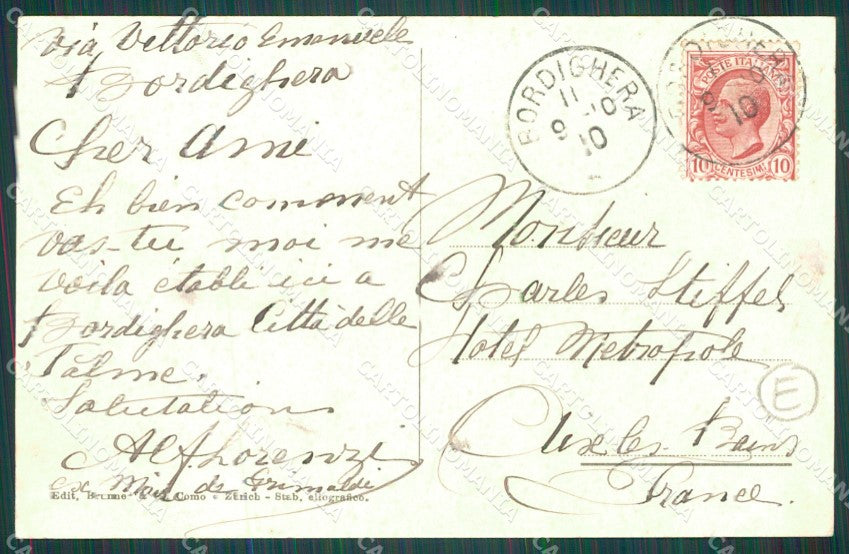 Via Vittorio Emanuele
Bordighera
Cher Ami
Eh bien comment
vas-tu moi me
voila établi ici a
Bordighera Città delle
Palme.
Salutations
Alf Lorenzi
ex de Grimaldi
Edit, & Como - Zürich - Stab. eliografico.
BORDIGHERA
11 10
10
POSTE ITALIANE
10 CENTESIMI 10
Monsieur
Charles Stiffel
Hotel Metropole
Aix les Bains
France.
E
CARTOLINOMANIA